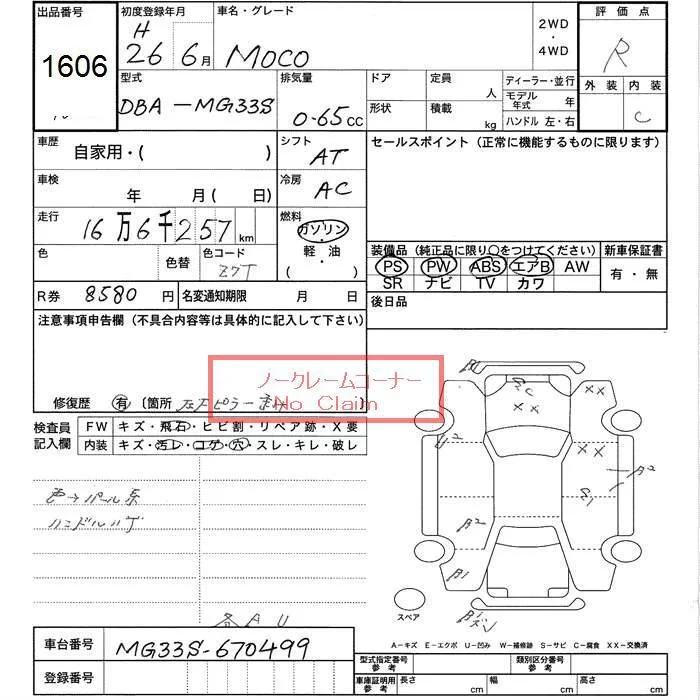 出品番号
1606
初度登録年月
H
26 6月
車名・グレード
MOCO
2WD
・
4WD
評価点
R
外装 内装
C
型式
DBA-MG33S
排気量
0.65cc
ドア
形状
定員 人
積載 kg
ディーラー・並行
モデル年式 年
ハンドル 左・右
車歴
自家用・( )
シフト
AT
セールスポイント (正常に機能するものに限ります)
車検
年 月(日)
冷房
AC
走行
16万6千257km
燃料
ガソリン
・
軽・油
( )
色
色替
色コード
Z7T
装備品 (純正品に限り〇をつけてください)
新車保証書
PS PW ABS エアB AW
SR ナビ TV カワ
有・無
R券 8580円
名変通知期限 月 日
後日品
注意事項申告欄 (不具合内容等は具体的に記入して下さい)
ノークレームコーナー
No Claim
修復歴 有 〔箇所
検査員
記入欄
FW キズ・飛石・ヒビ割・リペア跡・X要
内装 キズ・汚レ・コゲ・穴・スレ・キレ・破レ
色→パール系
B1
XX
XX
U2
XX
B2
B2
B1
スペア
A-キズ E-エクボ U-凹み W-補修跡 S-サビ C-腐食 XX-交換済
車台番号
MG33S-670499
登録番号
型式指定番号
参考
類別区分番号
参考
車庫証明用
参考
長さ cm
幅 cm
高さ cm